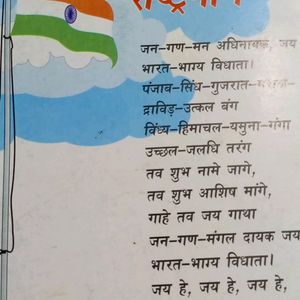 राष्ट्रगान
जन-गण-मन अधिनायक, जय
भारत-भाग्य विधाता।
पंजाब-सिंध-गुजरात-मराठा-
द्राविड़-उत्कल बंग
विंध्य-हिमाचल-यमुना-गंगा
उच्छल-जलधि तरंग
तव शुभ नामे जागे,
तव शुभ आशिष मांगे,
गाहे तव जय गाथा
जन-गण-मंगल दायक जय
भारत-भाग्य विधाता।
जय हे, जय हे, जय हे,